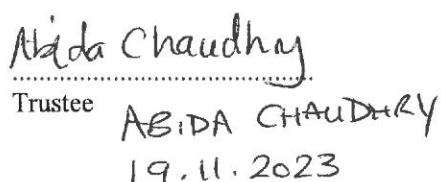 Abida Chaudhry
Trustee
ABIDA CHAUDHRY
19.11.2023